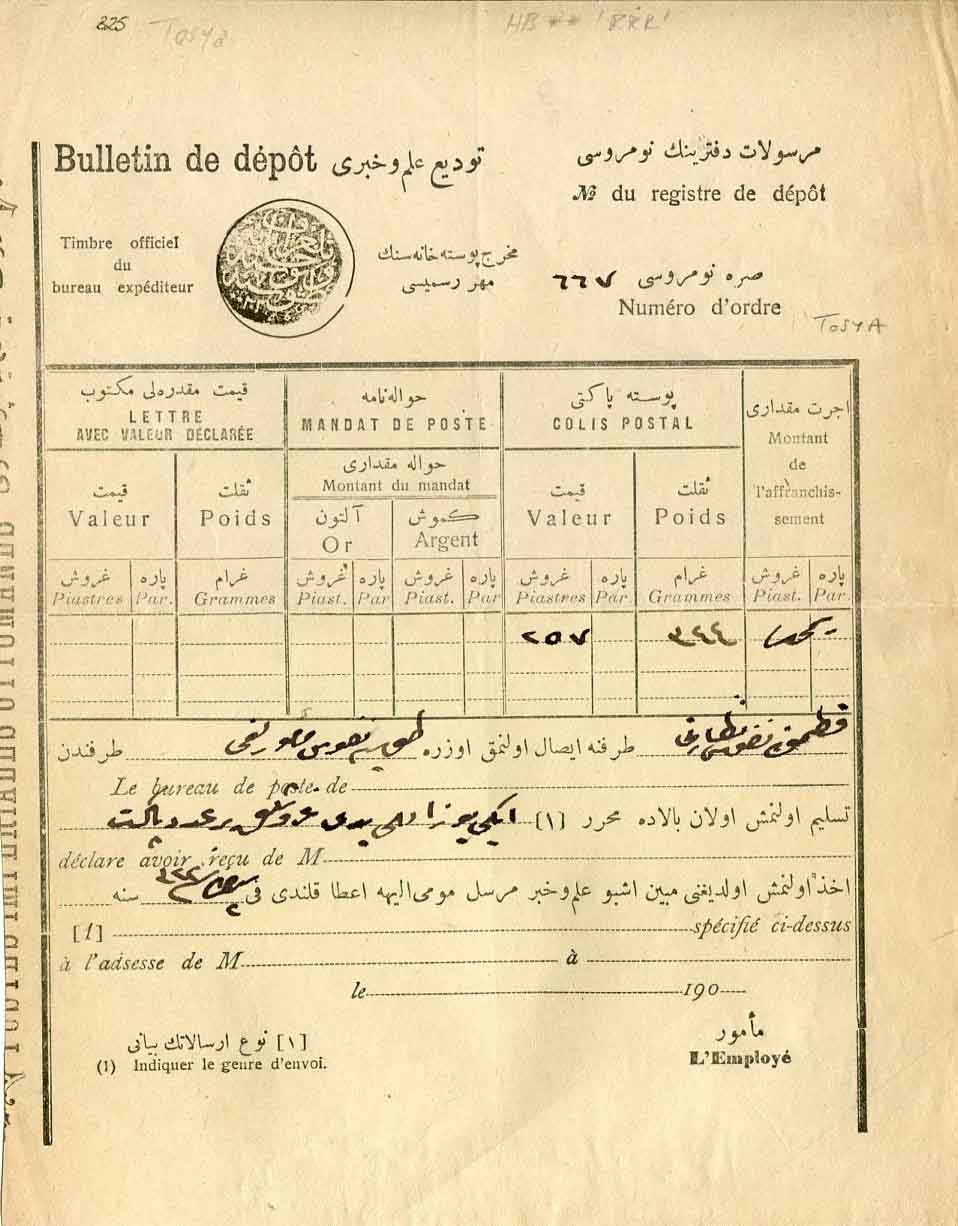 225 Tosya HB ** 'RRR'
Bulletin de dépôt توديع علم و خبرى
مرسولات دفترينك نومروسى
№ du registre de dépôt
Timbre officiel
du
bureau expéditeur
مخرج پوسته خانه سنك
مهر رسميسى
صره نومروسى ٦٦٧
Numéro d'ordre
TOSYA
قيمت مقدره‌لى مكتوب
LETTRE
AVEC VALEUR DÉCLARÉE
حواله‌نامه
MANDAT DE POSTE
پوسته پاكتى
COLIS POSTAL
اجرت مقدارى
Montant
de
l'affranchis-
sement
قيمت
Valeur
ثقلت
Poids
حواله مقدارى
Montant du mandat
آلتون
Or
كموش
Argent
قيمت
Valeur
ثقلت
Poids
غروش پاره غرام غروش پاره غروش پاره غروش پاره غرام غروش پاره
Piastres Par. Grammes Piast. Par Piast. Par Piastres Par. Grammes Piast. Par.
٢٥٧ ٣٤٤
طرفنه ايصال اولنمق اوزره طرفندن
Le bureau de poste de
تسليم اولنمش اولان بالاده محرر [١] ايكى يوز اللى يدى
déclare avoir reçu de M
اخذ اولنمش اولديغنى مبين اشبو علم و خبر مرسل مومى اليهه اعطا قلندى فى سنه
[1] spécifié ci-dessus
à l'adsesse de M à
le 190
مأمور
L'Employé
[١] نوع ارسالاتك بيانى
(1) Indiquer le genre d'envoi.